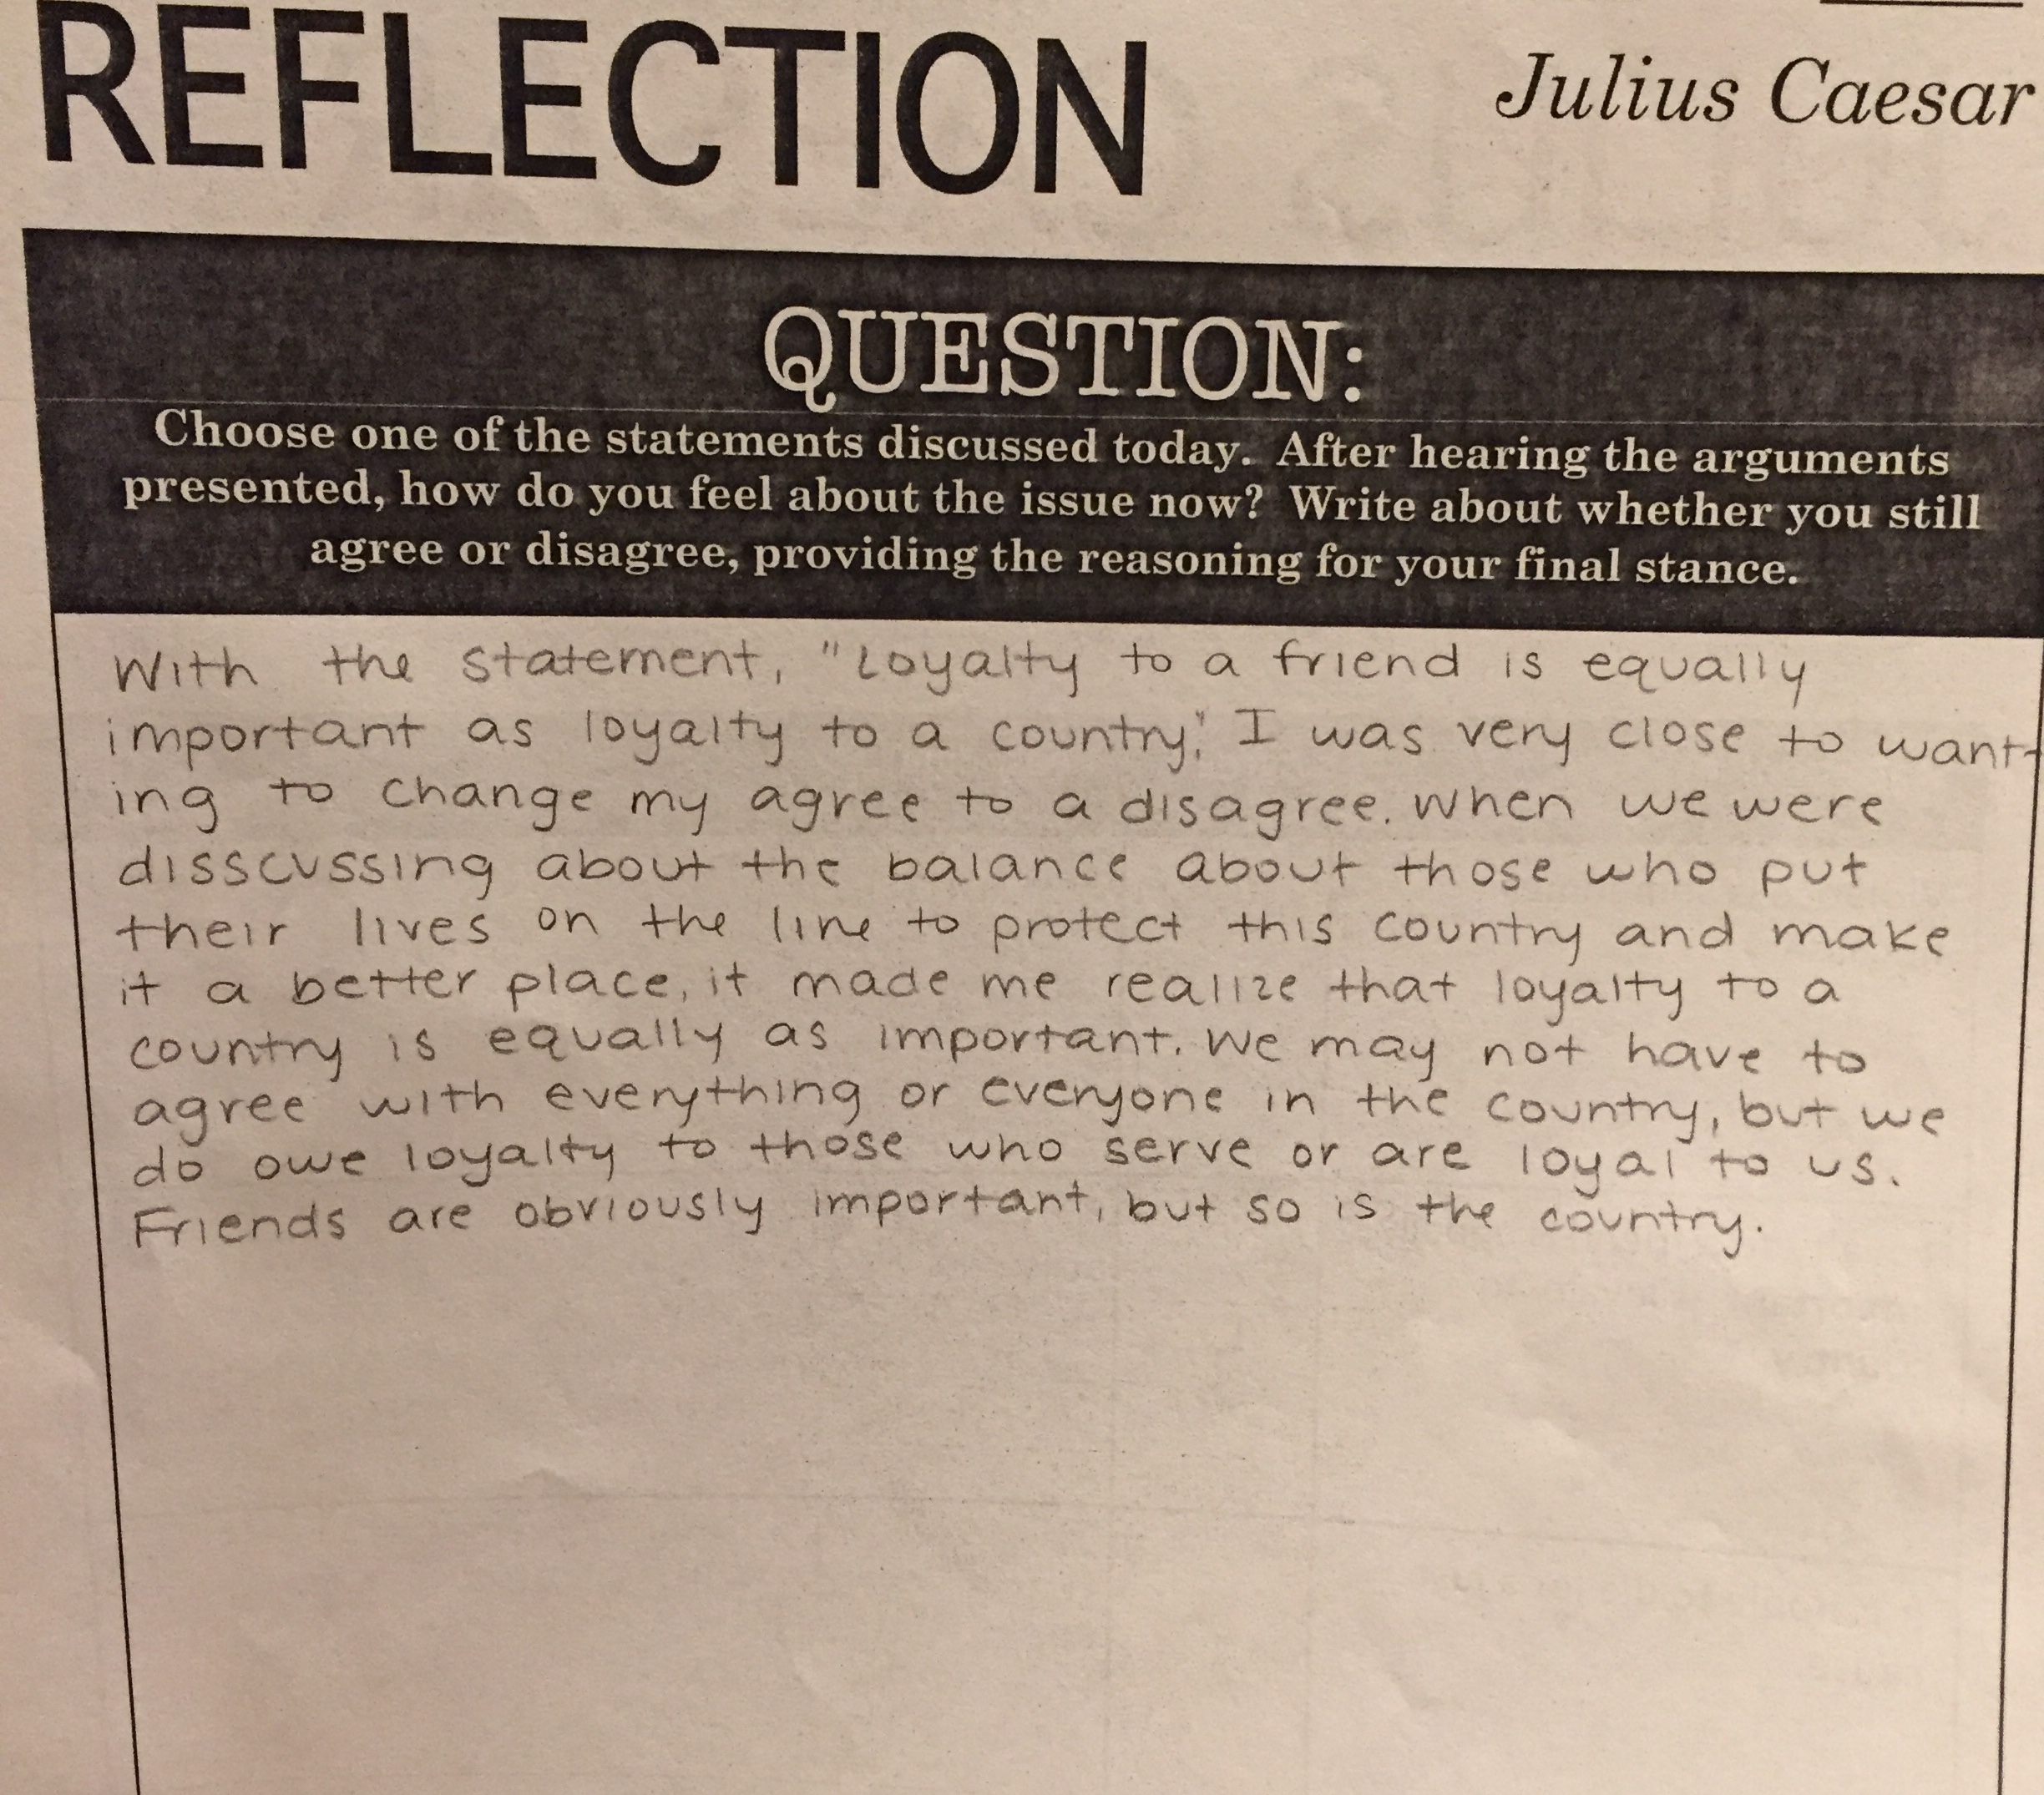 REFLECTION
Julius Caesar
QUESTION:
Choose one of the statements discussed today. After hearing the arguments
presented, how do you feel about the issue now? Write about whether you still
agree or disagree, providing the reasoning for your final stance.
With the statement, "Loyalty to a friend is equally
important as loyalty to a country," I was very close to want-
ing to change my agree to a disagree. When we were
disscussing about the balance about those who put
their lives on the line to protect this country and make
it a better place, it made me realize that loyalty to a
country is equally as important. We may not have to
agree with everything or everyone in the country, but we
do owe loyalty to those who serve or are loyal to us.
Friends are obviously important, but so is the country.